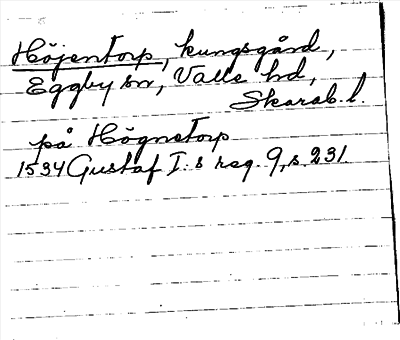 Höjentorp, kungsgård,
Eggby sn, Valle hd,
Skarab. l.
på Högnatorp
1534 Gustaf I:s reg. 9, s. 231.